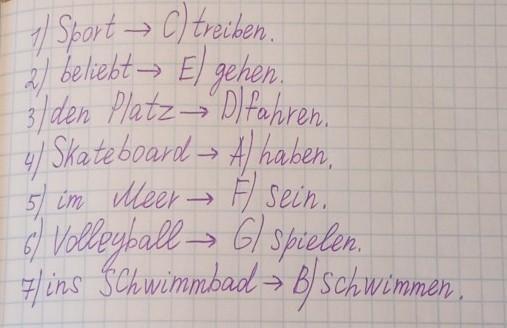 1) Sport → C) treiben.
2) beliebt → E) gehen.
3) den Platz → D) fahren.
4) Skateboard → A) haben.
5) im Meer → F) sein.
6) Volleyball → G) spielen.
7) ins Schwimmbad → B) schwimmen.